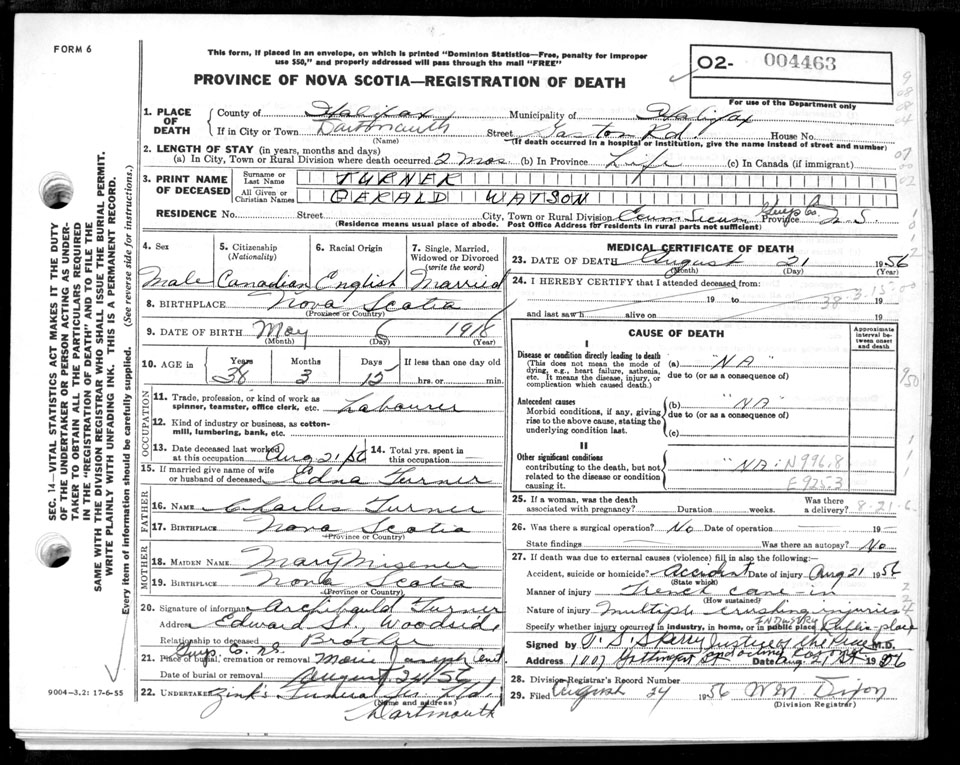 FORM 6
This form, if placed in an envelope, on which is printed "Dominion Statistics—Free, penalty for improper
use $50," and properly addressed will pass through the mail "FREE"
PROVINCE OF NOVA SCOTIA—REGISTRATION OF DEATH
02- 004463
For use of the Department only
1. PLACE OF DEATH
County of Halifax Municipality of Halifax
If in City or Town Dartmouth Street Gaston Rd. House No.
(Name) (If death occurred in a hospital or institution, give the name instead of street and number)
2. LENGTH OF STAY (in years, months and days)
(a) In City, Town or Rural Division where death occurred 2 mos (b) In Province Life (c) In Canada (if immigrant)
3. PRINT NAME OF DECEASED
Surname or Last Name TURNER
All Given or Christian Names GERALD WATSON
RESIDENCE No. Street City, Town or Rural Division Ecum Secum Guys Co. Province N.S.
(Residence means usual place of abode. Post Office Address for residents in rural parts not sufficient)
4. Sex 5. Citizenship (Nationality) 6. Racial Origin 7. Single, Married, Widowed or Divorced (write the word)
Male Canadian English Married
8. BIRTHPLACE Nova Scotia
(Province or Country)
9. DATE OF BIRTH May 6 1918
(Month) (Day) (Year)
10. AGE in Years Months Days If less than one day old
38 3 15 hrs. or min.
OCCUPATION
11. Trade, profession, or kind of work as
spinner, teamster, office clerk, etc. Labourer
12. Kind of industry or business, as cotton-
mill, lumbering, bank, etc.
13. Date deceased last worked at this occupation Aug 21st 14. Total yrs. spent in this occupation
15. If married give name of wife
or husband of deceased Edna Turner
FATHER
16. NAME Charles Turner
17. BIRTHPLACE Nova Scotia
(Province or Country)
MOTHER
18. MAIDEN NAME Mary Misener
19. BIRTHPLACE Nova Scotia
(Province or Country)
20. Signature of informant Archibauld Turner
Address Edward St., Woodside
Relationship to deceased Brother
Guys. Co. N.S.
21. Place of burial, cremation or removal Moser Joseph Cem't
Date of burial or removal August 24/56
22. UNDERTAKER Zink's Funeral Ser. Ltd.
(Name and address)
Dartmouth
MEDICAL CERTIFICATE OF DEATH
23. DATE OF DEATH August 21 1956
(Month) (Day) (Year)
24. I HEREBY CERTIFY that I attended deceased from:
19 to 19
38-3-15-00
and last saw h alive on 19
CAUSE OF DEATH
Approximate interval between onset and death
I
Disease or condition directly leading to death
(This does not mean the mode of
dying, e.g., heart failure, asthenia,
etc. It means the disease, injury, or
complication which caused death.)
(a) "NA"
due to (or as a consequence of)
Antecedent causes
Morbid conditions, if any, giving
rise to the above cause, stating the
underlying condition last.
(b) "NA"
due to (or as a consequence of)
(c)
II
Other significant conditions
contributing to the death, but not
related to the disease or condition
causing it.
"NA" N996.8
E925.3
25. If a woman, was the death
associated with pregnancy? Duration weeks. Was there a delivery? 8-21-6
26. Was there a surgical operation? No Date of operation 19
State findings Was there an autopsy? No
27. If death was due to external causes (violence) fill in also the following:
Accident, suicide or homicide? Accident Date of injury Aug 21 1956
(State which)
Manner of injury Trench cave in
(How sustained)
Nature of injury multiple crushing injuries
INDUSTRY
Specify whether injury occurred in industry, in home, or in public place Public place
Signed by Justice of the Peace M.D.
Address Date Aug 21st 1956
28. Division Registrar's Record Number
29. Filed August 24 1956 Wm Dixon
(Division Registrar)
SEC. 14—VITAL STATISTICS ACT MAKES IT THE DUTY
OF THE UNDERTAKER OR PERSON ACTING AS UNDER-
TAKER TO OBTAIN ALL THE PARTICULARS REQUIRED
IN THE "REGISTRATION OF DEATH" AND TO FILE THE
SAME WITH THE DIVISION REGISTRAR WHO SHALL ISSUE THE BURIAL PERMIT.
WRITE PLAINLY WITH UNFADING INK. THIS IS A PERMANENT RECORD.
Every item of information should be carefully supplied. (See reverse side for instructions.)
9004-3.2: 17-6-55